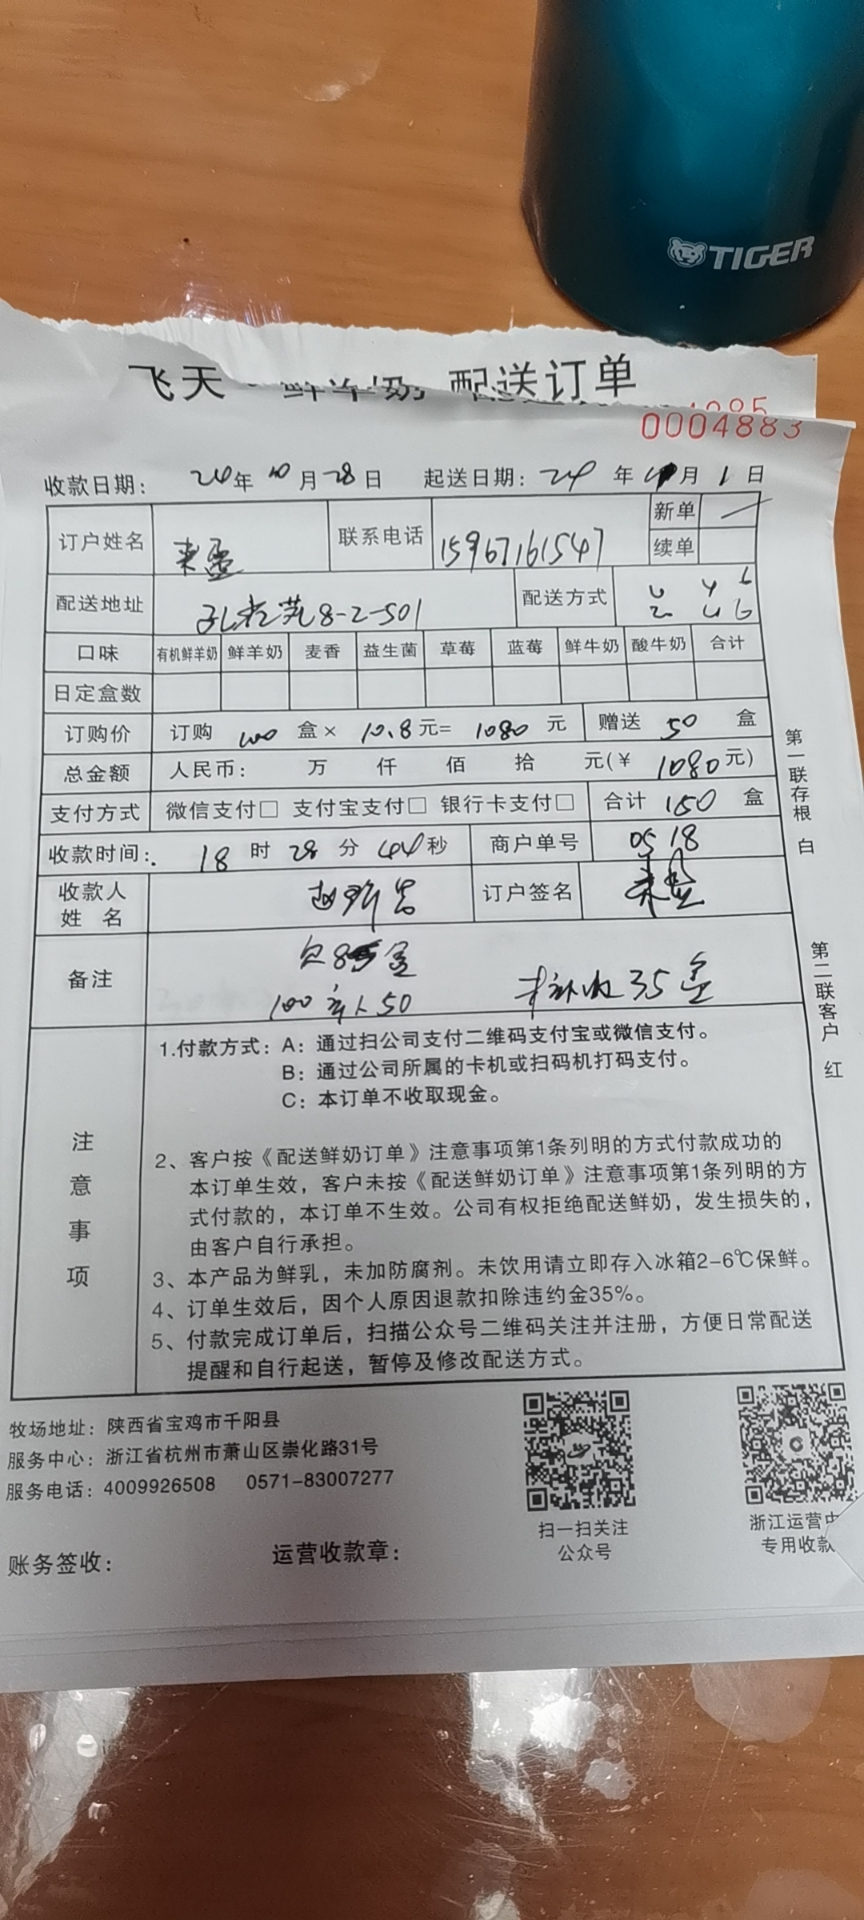 TIGER
飞天·鲜羊奶 配送订单
0004883
收款日期： 24年10月28日 起送日期：24年 月1日
订户姓名 联系电话 15967161547 新单 续单
配送地址 8-2-501 配送方式
2 4 6
口味 有机鲜羊奶 鲜羊奶 麦香 益生菌 草莓 蓝莓 鲜牛奶 酸牛奶 合计
日定盒数
订购价 订购 100 盒× 10.8元= 1080 元 赠送 50 盒
总金额 人民币： 万 仟 佰 拾 元(￥ 1080元)
支付方式 微信支付□ 支付宝支付□ 银行卡支付□ 合计 150 盒
收款时间： 18时 28分 44秒 商户单号 0518
收款人姓名 订户签名
备注 欠85盒
100 50 补收35盒
注意事项
1.付款方式：A：通过扫公司支付二维码支付宝或微信支付。
B：通过公司所属的卡机或扫码机打码支付。
C：本订单不收取现金。
2、客户按《配送鲜奶订单》注意事项第1条列明的方式付款成功的
本订单生效，客户未按《配送鲜奶订单》注意事项第1条列明的方
式付款的，本订单不生效。公司有权拒绝配送鲜奶，发生损失的，
由客户自行承担。
3、本产品为鲜乳，未加防腐剂。未饮用请立即存入冰箱2-6℃保鲜。
4、订单生效后，因个人原因退款扣除违约金35%。
5、付款完成订单后，扫描公众号二维码关注并注册，方便日常配送
提醒和自行起送，暂停及修改配送方式。
第一联存根 白
第二联客户 红
牧场地址：陕西省宝鸡市千阳县
服务中心：浙江省杭州市萧山区崇化路31号
服务电话：4009926508 0571-83007277
扫一扫关注
公众号
浙江运营中
专用收款
账务签收： 运营收款章：